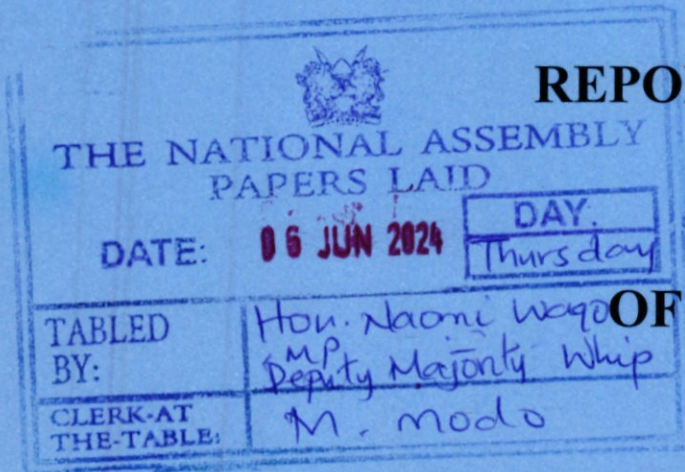 REPO
THE NATIONAL ASSEMBLY
PAPERS LAID
DATE: 06 JUN 2024
DAY.
Thursday
TABLED BY:
Hon. Naomi Waqo
MP
Deputy Majority Whip
OF
CLERK-AT THE-TABLE:
M. Modo